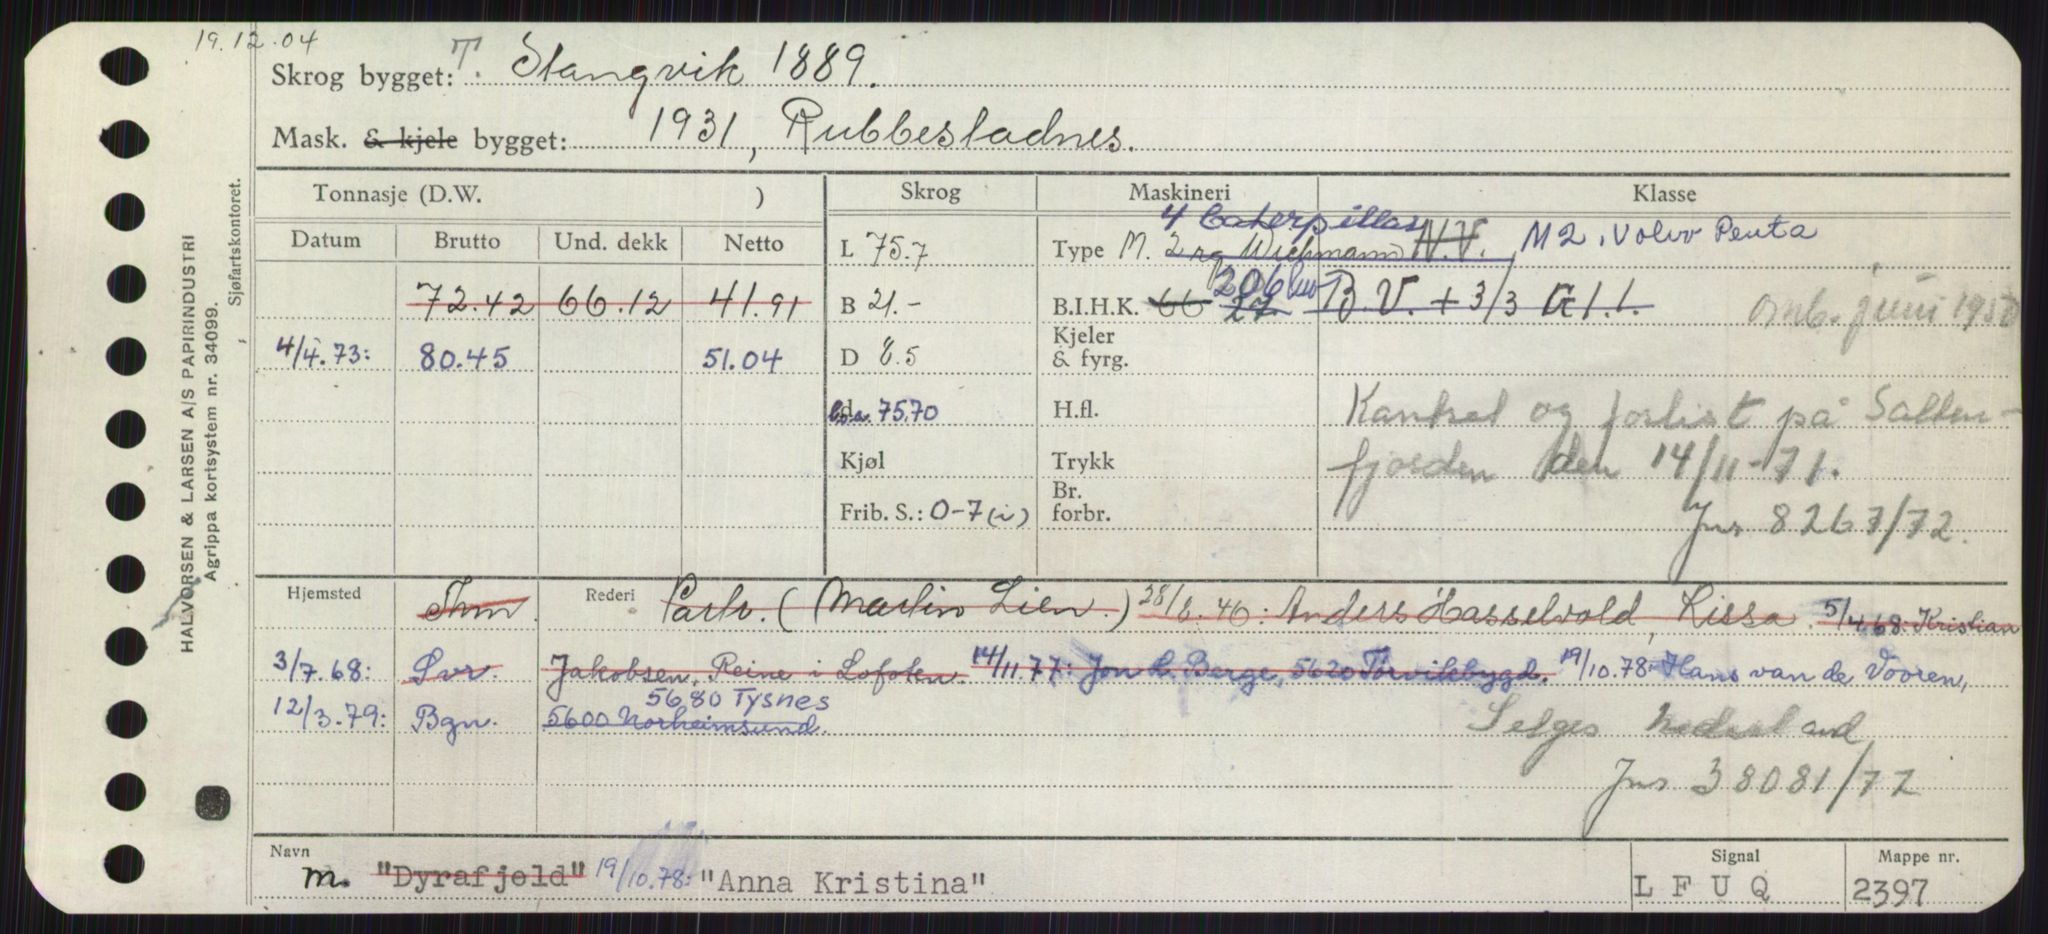 19.12.04
Skrog bygget: T. Stangvik 1889.
Mask. & kjele bygget: 1931, Rubbestadnes.
Tonnasje (D.W. )
Skrog
Maskineri
Klasse
Datum
Brutto
Und. dekk
Netto
72.42 66.12 41.91
4/4.73: 80.45 51.04
L 75.7
B 21.-
D 8.5
l.o.a. 75.70
Kjøl
Frib. S.: 0-7 (i)
4 Caterpillar
Type M. 2 Wichmann N.V. M2, Volvo Penta
206 kw
B.I.H.K. 66 27. B.V. + 3/3 G 1.1. juni 1950
Kjeler
& fyrg.
H.fl.
Trykk
Br.
forbr.
Kantret og forlist på Salten-
fjorden den 14/11-71.
Jnr 8267/72.
Hjemsted Thm. Rederi Partr. (Martin Lien.) 28/8.46: Anders Hasselvold, Rissa. 5/4.68: Kristian
3/7.68: Svr. Jakobsen, Reine i Lofoten. 14/11.77: Jon L. Berge, 5620 Tørvikbygd. 19/10.78: Hans van de Vooren,
5680 Tysnes
12/3.79: Bgn. 5600 Norheimsund.
Selges Nederland
Jnr 38081/72
Navn
m. "Dyrafjeld" 19/10.78: "Anna Kristina"
Signal
L F U Q
Mappe nr.
2397
HALVORSEN & LARSEN A/S PAPIRINDUSTRI
Agrippa kortsystem nr. 34099.
Sjøfartskontoret.